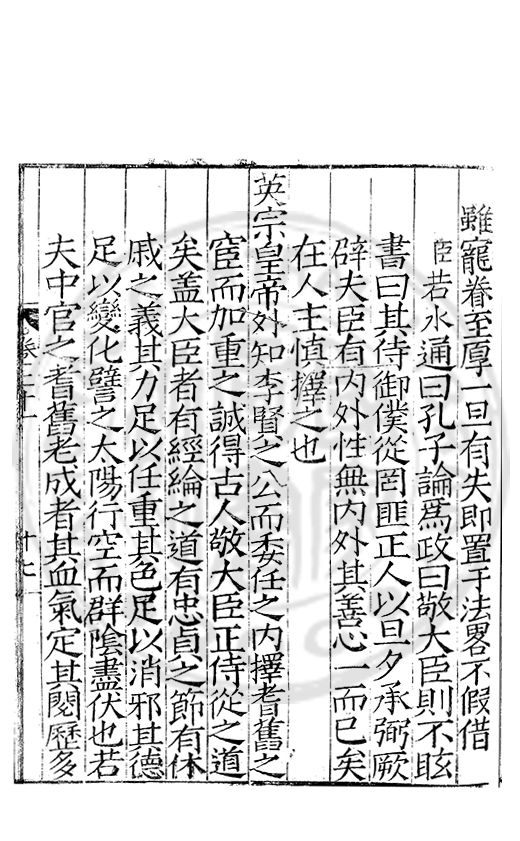 雖寵眷至厚一旦有失即置于法畧不假借
臣若水通曰孔子論爲政曰敬大臣則不眩
書曰其侍御僕從罔匪正人以旦夕承弼厥
辟夫臣有内外性無内外其善心一而已矣
在人主慎擇之也
英宗皇帝外知李賢之公而委任之内擇耆舊之
宦而加重之誠得古人敬大臣正侍從之道
矣盖大臣者有經綸之道有忠貞之節有休
戚之義其力足以任重其色足以消邪其德
足以變化譬之太陽行空而群陰盡伏也若
夫中官之耆舊老成者其血氣定其閱歷多
卷二十一 十七